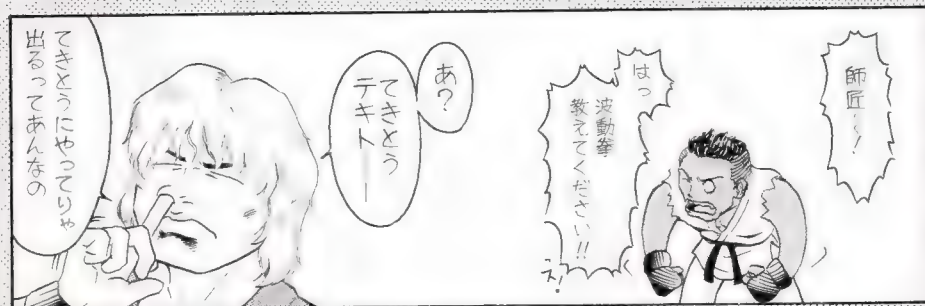 師匠～！
はっ
波動拳
教えてください!!
あ？
てきとう
テキトーー
てきとうにやってりゃ
出るってあんなの